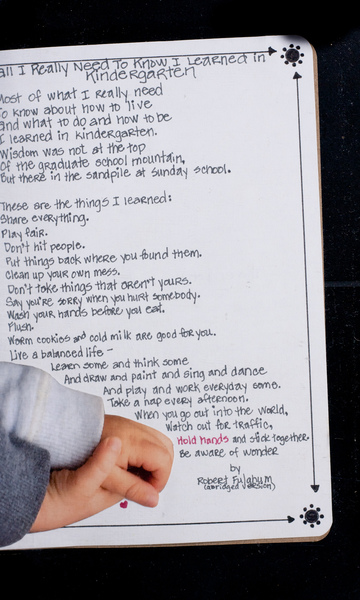 all I Really Need To Know I Learned in
Kindergarten
Most of what I really need
To know about how to live
and what to do and how to be
I learned in kindergarten.
Wisdom was not at the top
Of the graduate school mountain,
But there in the sandpile at Sunday school.
These are the things I learned:
Share everything.
Play fair.
Don't hit people.
Put things back where you found them.
Clean up your own mess.
Don't take things that aren't yours.
Say you're sorry when you hurt somebody.
Wash your hands before you eat.
Flush.
Warm cookies and cold milk are good for you.
Live a balanced life -
Learn some and think some
And draw and paint and sing and dance
And play and work everyday some.
Take a nap every afternoon.
When you go out into the world,
Watch out for traffic,
Hold hands and stick together.
Be aware of wonder
by
Robert Fulghum
(abridged version)